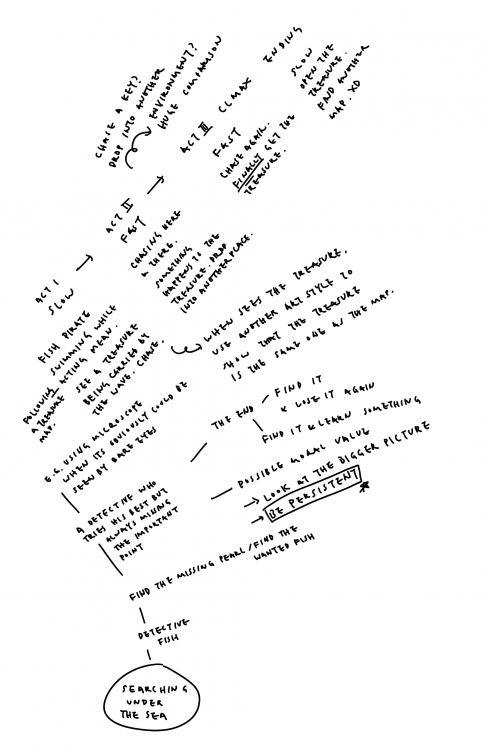 CHASE A KEY?
DROP INTO ANOTHER
ENVIRONMENT?
HUGE COMPARISON
ACT I
SLOW
FISH PIRATE
SWIMMING WHILE
ACTING MEAN.
SEE A TREASURE
BEING CARRIED BY
THE WAVE. CHASE.
FOLLOWING
A TREASURE
MAP.
ACT II
FAST
CHASING HERE
& THERE.
SOMETHING
HAPPENS TO THE
TREASURE. DROP
INTO ANOTHER PLACE.
ACT III
FAST
CHASE AGAIN.
FINALLY GET THE
TREASURE.
CLMAX
ENDING
SLOW
OPEN THE
TREASURE.
FIND ANOTHER
MAP. XD
WHEN SEES THE TREASURE.
USE ANOTHER ART STYLE TO
SHOW THAT THE TREASURE
IS THE SAME ONE AS THE MAP.
E.G. USING MICROSCOPE
WHEN ITS OBVIOUSLY COULD BE
SEEN BY BARE EYES
THE END
FIND IT
& LOSE IT AGAIN
FIND IT & LEARN SOMETHING
A DETECTIVE WHO
TRIES HIS BEST BUT
ALWAYS MISSING
THE IMPORTANT
POINT
POSSIBLE MORAL VALUE
→ LOOK AT THE BIGGER PICTURE
→ BE PERSISTENT *
FIND THE MISSING PEARL / FIND THE
WANTED FISH
DETECTIVE
FISH
SEARCHING
UNDER
THE SEA